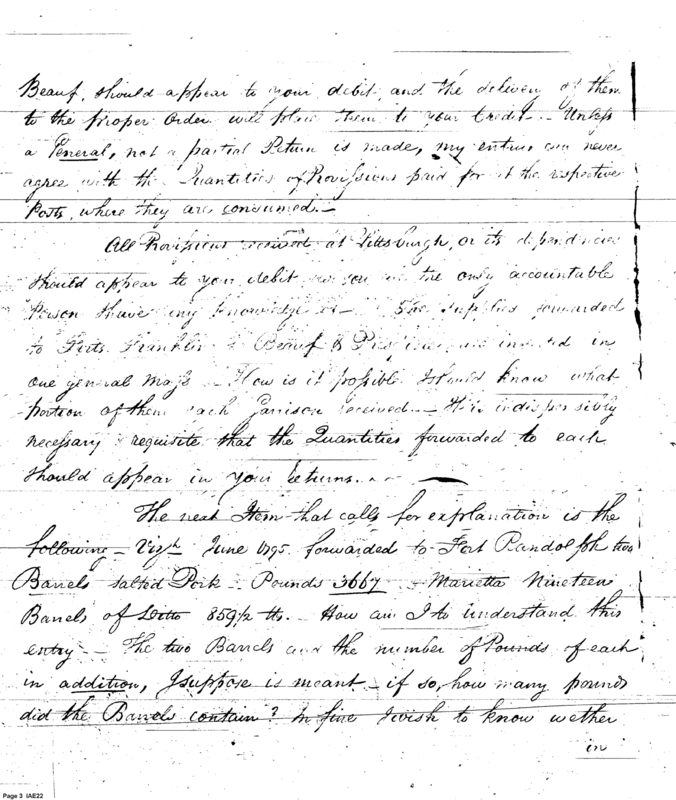 Beauf, should appear to your debit, and the delivery of them
to the proper Order will place them to your Credit. - Unless
a General, not a partial Return is made, my entries can never
agree with the Quantities of Provissions paid for at the respective
Posts, where they are consumed. -
All Provissions received at Pittsburgh, or its dependencies
should appear to your debit as you are the only accountable
Person I have any knowledge of - The supplies forwarded
to Forts Franklin Le Beouf & are in
one general Mass - How is it possible I should know what
portion of them each Garrison received. - It is indispensibly
necessary & requisite that the Quantities forwarded to each
should appear in your Returns. -
The next Item that calls for explanation is the
following - Vizt June 1795. forwarded to Fort Randolph two
Barrels salted Pork - Pounds 3667 - Marietta Nineteen
Barrels of Ditto 859 1/2 lbs. - How am I to understand this
entry - The two Barrels and the number of Pounds of each
in addition, I suppose is meant - if so, how many pounds
did the Barrels contain? In fine I wish to know wether
in
Page 3 IAE22